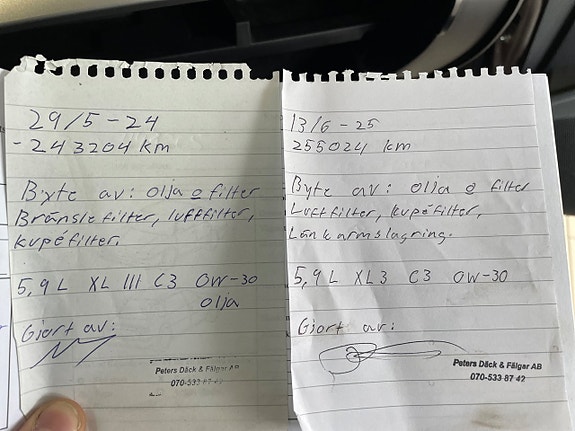 29/5 - 24
- 243204 km
Byte av: olja o filter
Bränslefilter, luftfilter,
kupéfilter.
5,9 L XL III C3 0W-30
olja
Gjort av:
Peters Däck & Fälgar AB
070-533 87 42
13/6 - 25
255024 km
Byte av: olja o filter
Luftfilter, kupéfilter,
Länkarmslagring.
5,9 L XL3 C3 0W-30
Gjort av:
Peters Däck & Fälgar AB
070-533 87 42